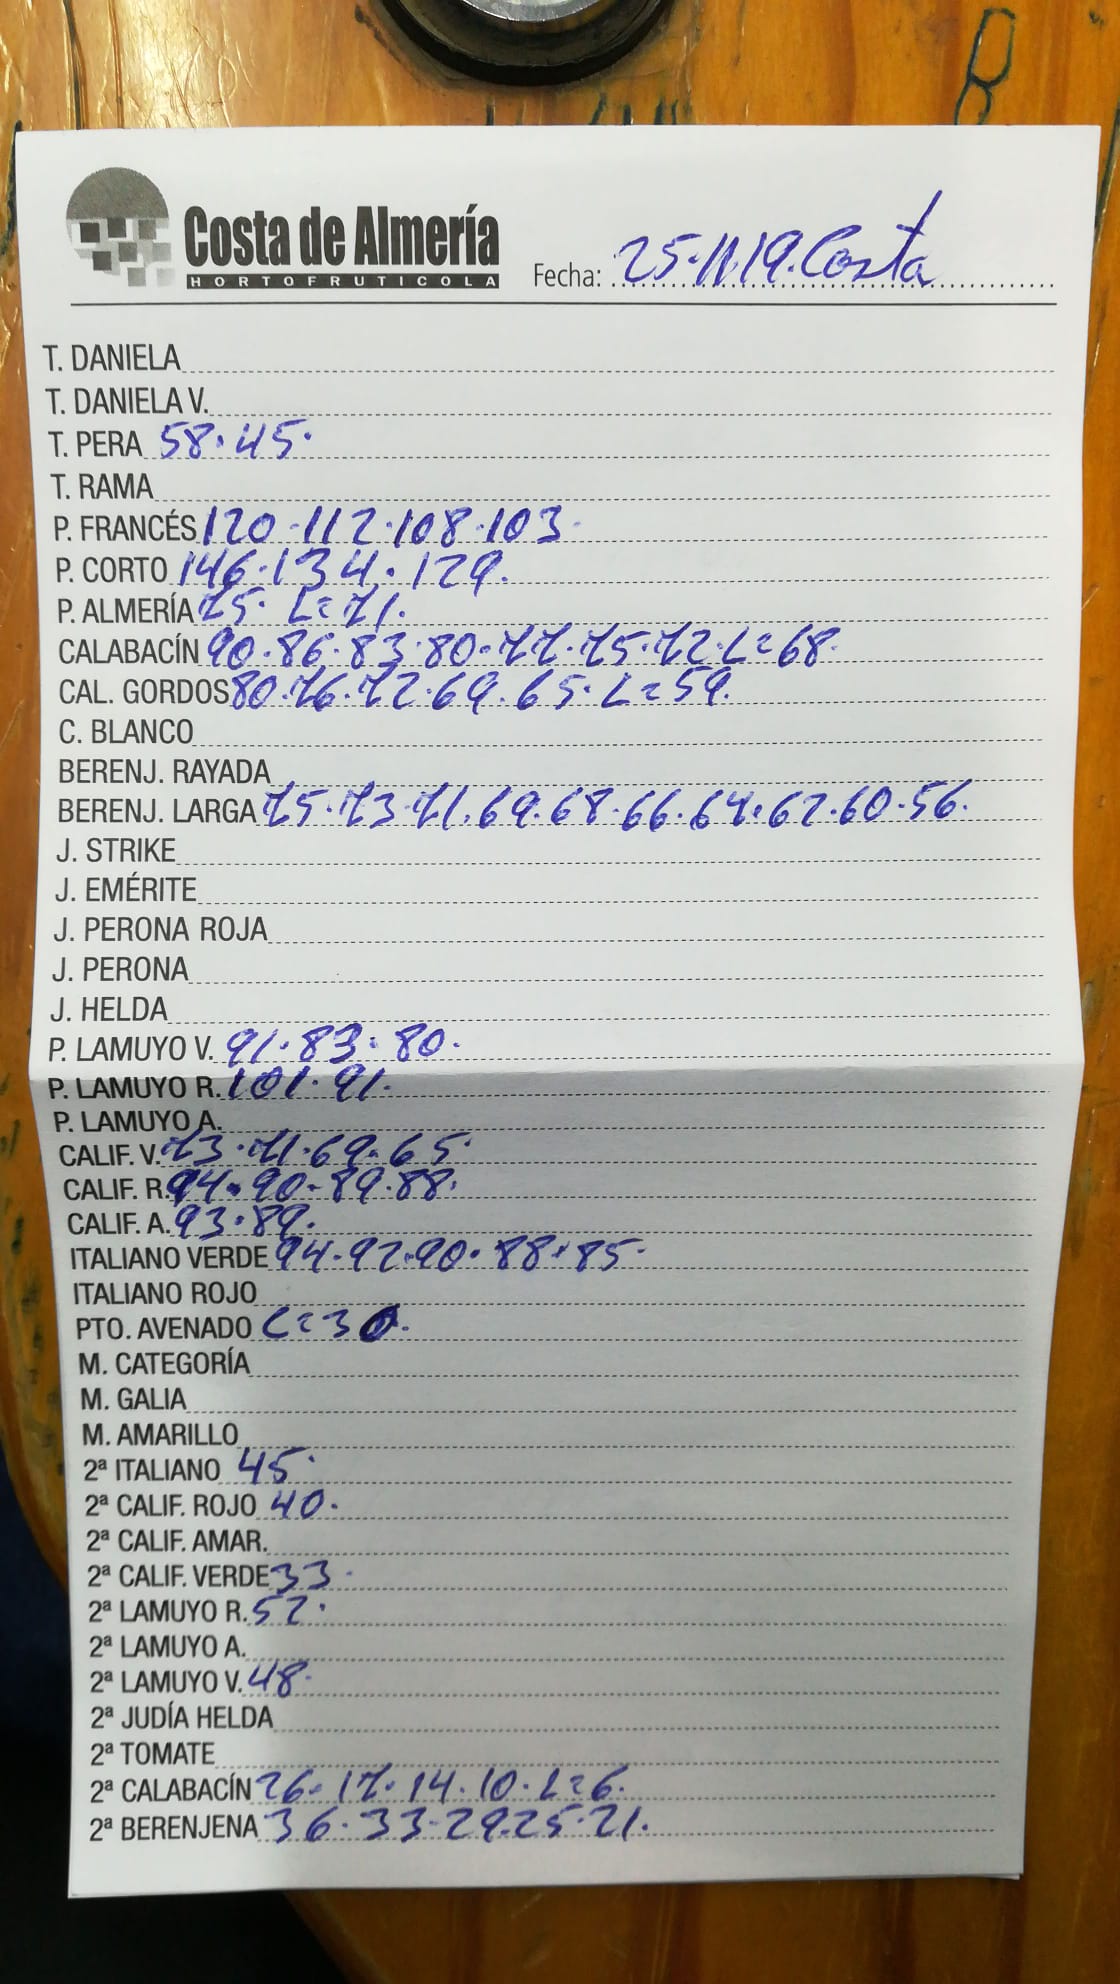 Costa de Almería
HORTOFRUTICOLA
Fecha: 25·11·19·Costa
T. DANIELA
T. DANIELA V.
T. PERA 58·45·
T. RAMA
P. FRANCÉS 120·112·108·103·
P. CORTO 146·134·129.
P. ALMERÍA 75· L=71.
CALABACÍN 90·86·83·80·77·75·72·L=68·
CAL. GORDOS 80·76·72·69·65·L=59.
C. BLANCO
BERENJ. RAYADA
BERENJ. LARGA 75·73·71·69·68·66·64·62·60·56·
J. STRIKE
J. EMÉRITE
J. PERONA ROJA
J. PERONA
J. HELDA
P. LAMUYO V. 91·83·80·
P. LAMUYO R. 101·91·
P. LAMUYO A.
CALIF. V. 73·71·69·65·
CALIF. R. 94·90·89·88·
CALIF. A. 93·89·
ITALIANO VERDE 94·92·90·88·85·
ITALIANO ROJO
PTO. AVENADO L=30·
M. CATEGORÍA
M. GALIA
M. AMARILLO
2ª ITALIANO 45·
2ª CALIF. ROJO 40·
2ª CALIF. AMAR.
2ª CALIF. VERDE 33·
2ª LAMUYO R. 52·
2ª LAMUYO A.
2ª LAMUYO V. 48·
2ª JUDÍA HELDA
2ª TOMATE
2ª CALABACÍN 26·17·14·10·L=6·
2ª BERENJENA 36·33·29·25·21.